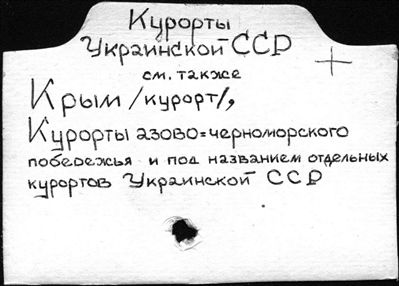 Курорты
Украинской ССР
см. также
Крым /курорт/,
Курорты азово=черноморского
побережья и под названием отдельных
курортов Украинской ССР